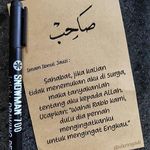 صَاحِبْ
Imam Ibnul Jauzi :
Sahabat, jika kalian
tidak menemukan aku di surga,
maka tanyakanlah
tentang aku kepada Allah.
Ucapkan: "Wahai Rabb kami,
dulu dia pernah
mengingatkanku
untuk mengingat Engkau"
SNOWMAN 700